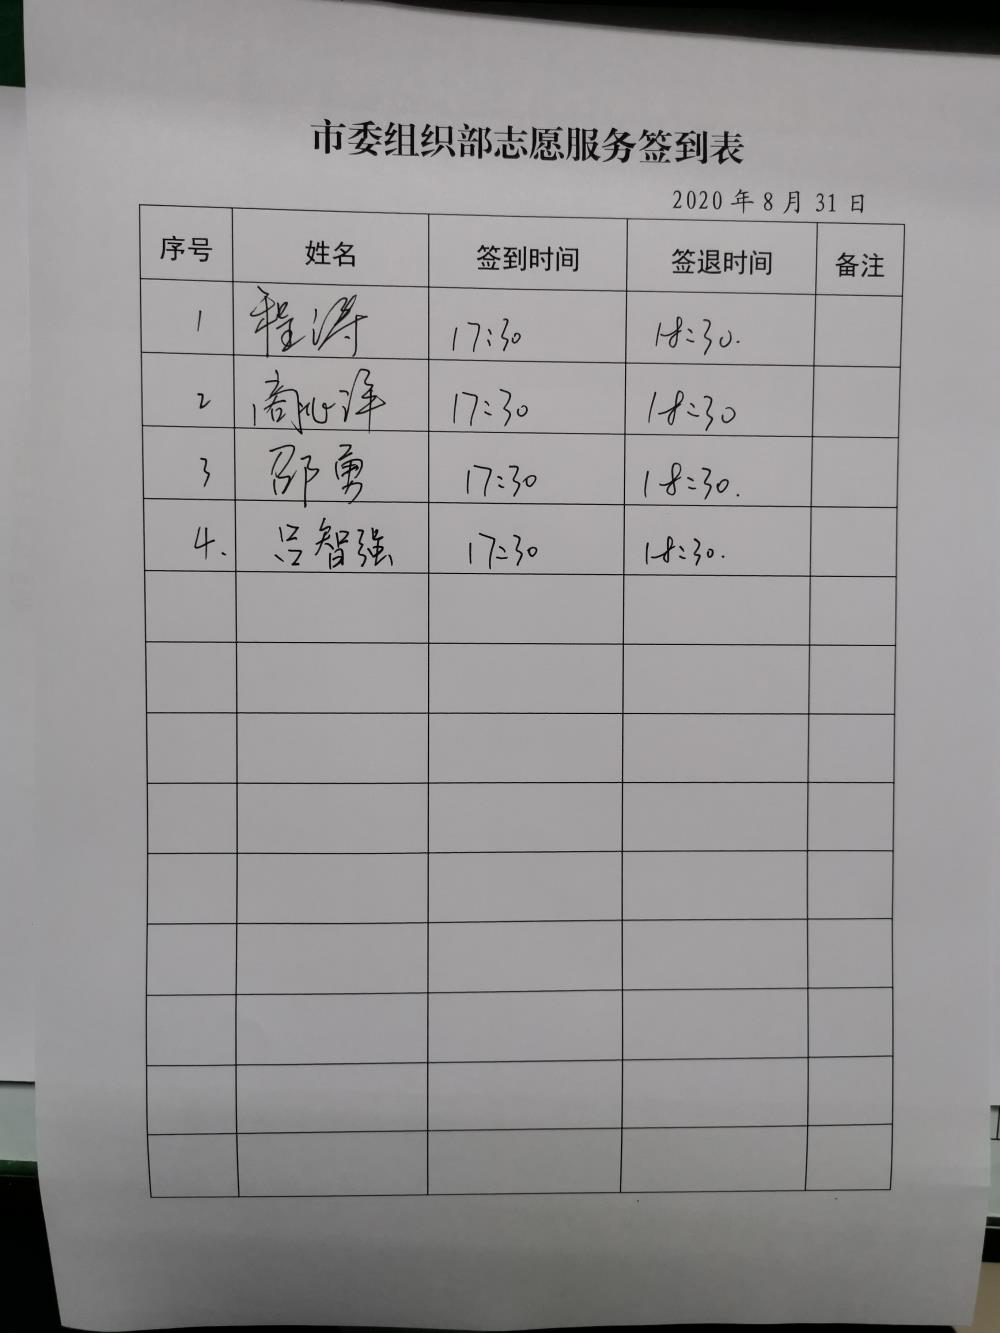 市委组织部志愿服务签到表
2020年8月31日
序号 姓名 签到时间 签退时间 备注
1 程涛 17:30 18:30.
2 商心洋 17:30 18:30
3 邵勇 17:30 18:30.
4. 吕智强 17:30 18:30.